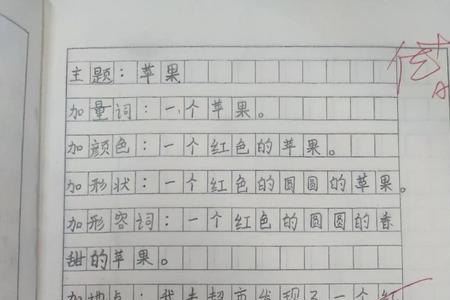 主题：苹果
加量词：一个苹果。
加颜色：一个红色的苹果。
加形状：一个红色的圆圆的苹果。
加形容词：一个红色的圆圆的香
甜的苹果。
加地点：我去超市发现了一个红
优
A